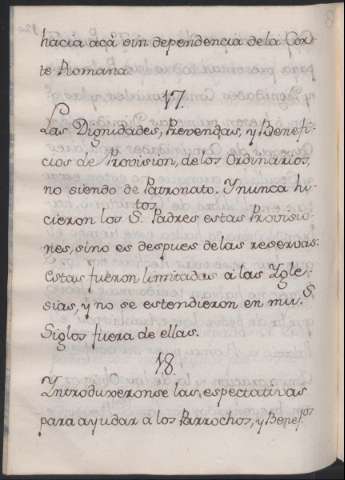 hacia acà sin dependencia dela Cor-
te Romana
17.
Las Dignidades, Prevendas, y Benefi-
cios de Provision, de los Ordinarios,
no siendo de Patronato. Y nunca hi-
cieron los S.tos Padres estas Provisio-
nes, sino es despues de las reservas:
estas fueron limitadas á las Ygle-
sias, y no se estendieron en muy S.
Siglos fuera de ellas.
18.
Yntroduxeronse las, espectativas
para ayudar a los Parrochos, y Benef.os